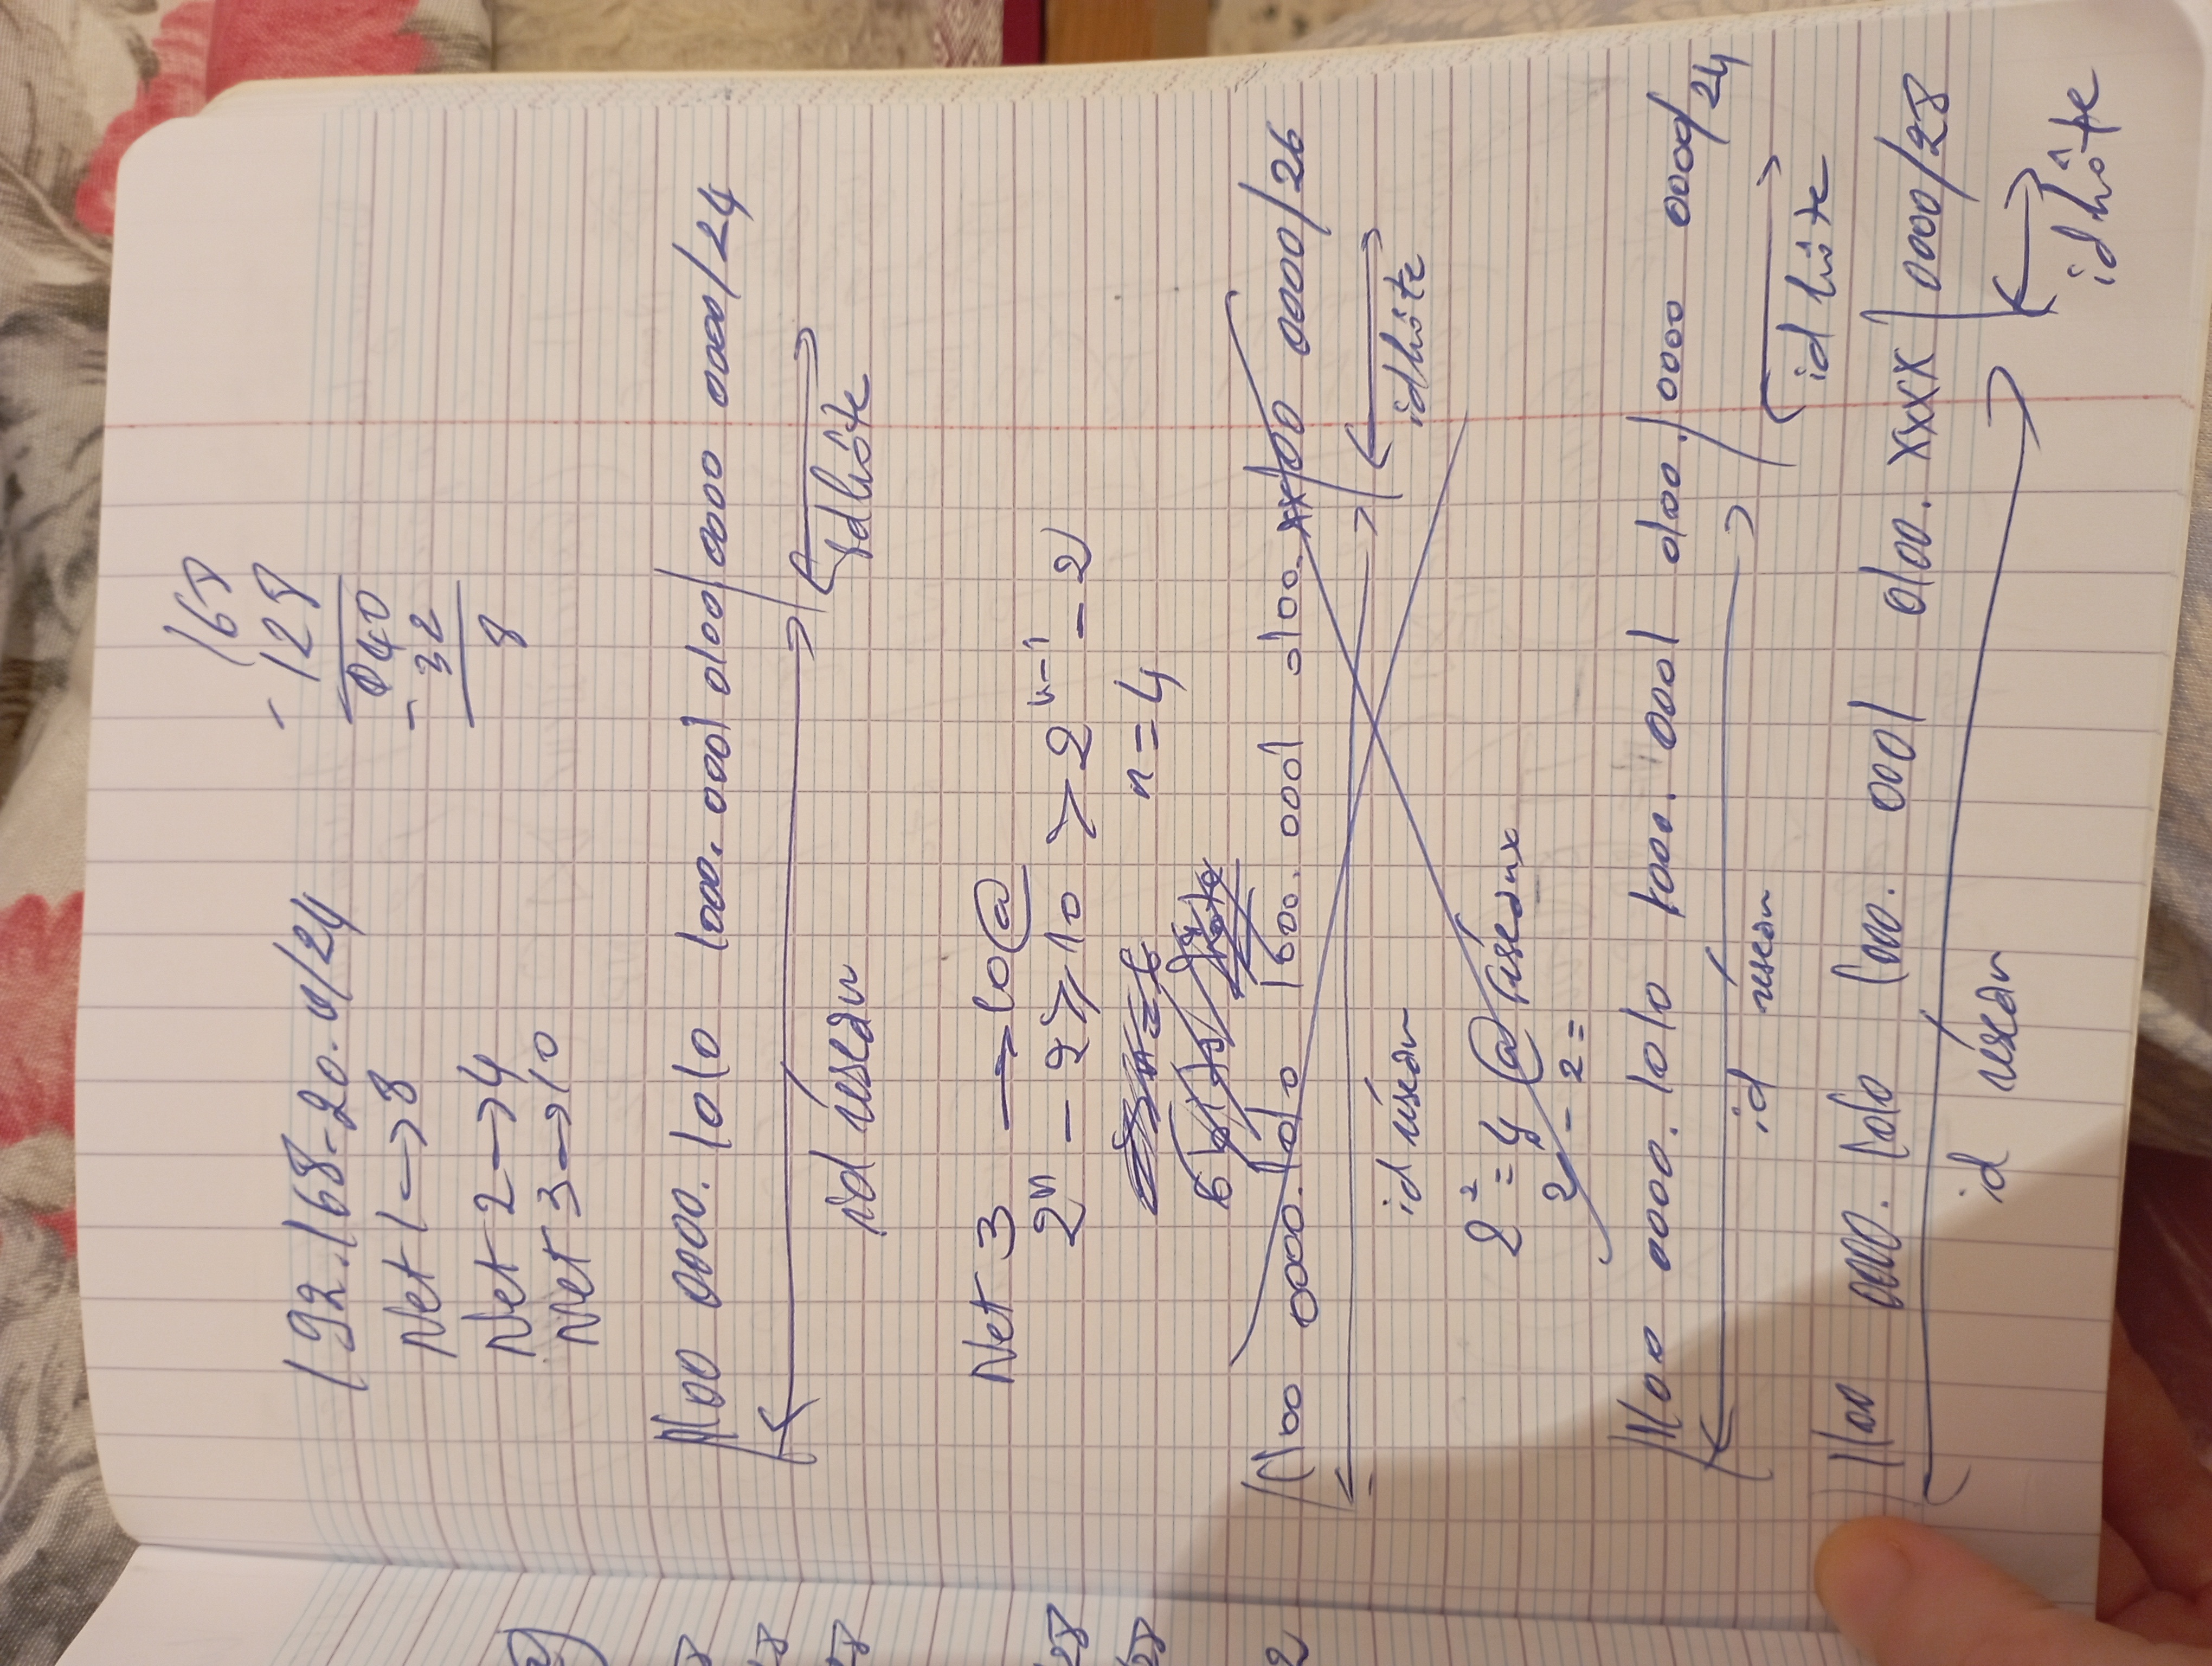 168
- 128
192.168-20.0/24
040
Net 1 → 8
- 32
Net 2 → 4
8
Net 3 → 10
1100 0000. 1010 1000. 0001 0100 | 0000 0000/24
id réseau
id hôte
Net 3 → 10 @
2^n - 2 ⩾ 10 > 2^n-1 - 2
n = 4
6 bits
1100 0000. 1010 1000. 0001 0100. xx | 00 0000/26
id réseau
id hôte
2^2 = 4 @ réseaux
- 2 =
1100 0000. 1010 1000. 0001 0100. | 0000 0000/24
id réseau
id hôte
1100 0000. 1010 1000. 0001 0100. xxxx | 0000/28
id réseau
id hôte